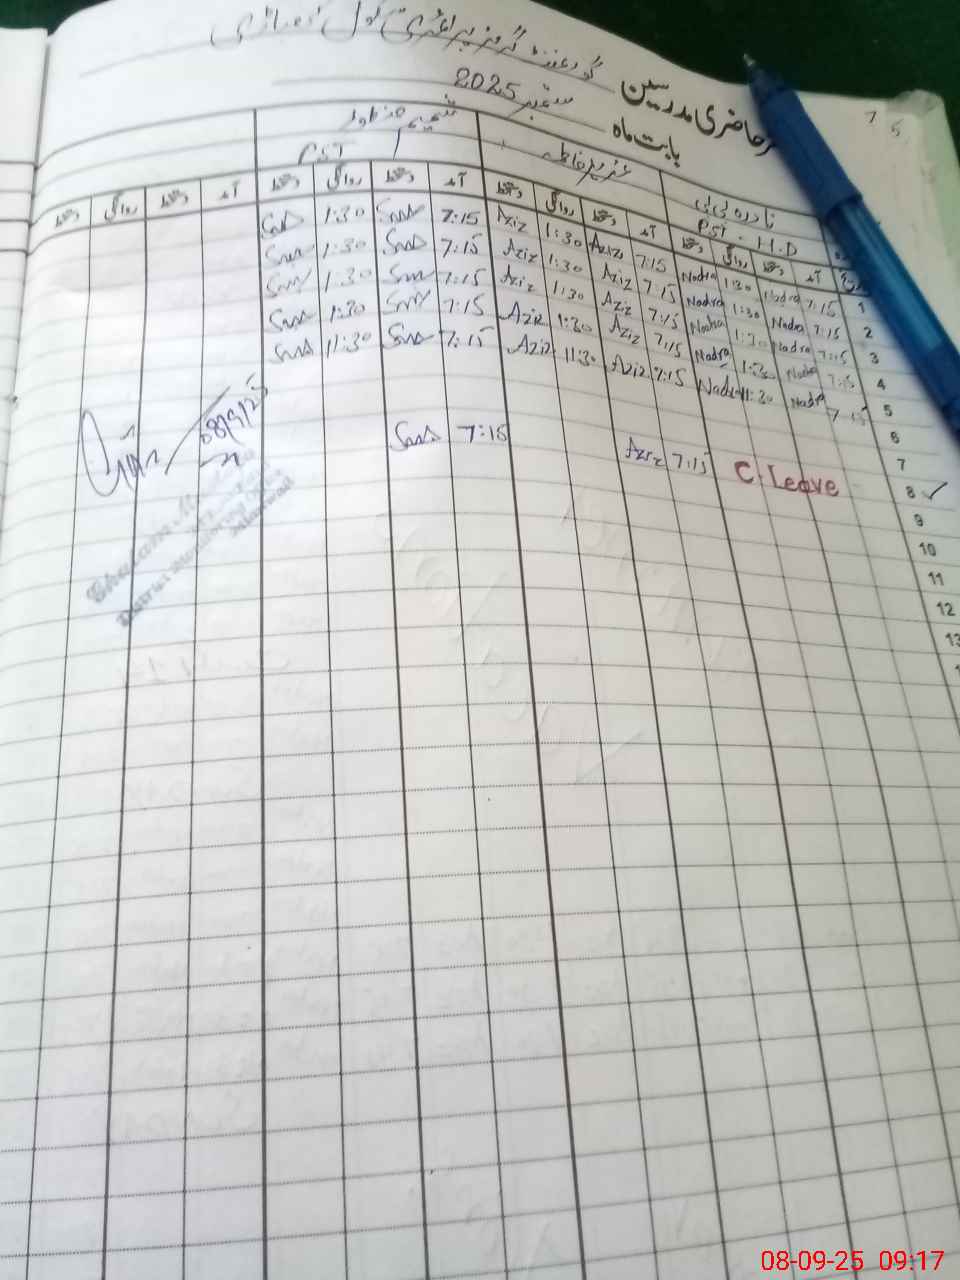 گورنمنٹ گرلز پرائمری سکول
حاضری مدرسین
بابت ماہ ستمبر 2025
نادرہ بی بی عزیز فاطمہ شمیم منظور
PST - H.D PST
آمد دستخط روانگی دستخط آمد دستخط روانگی دستخط آمد دستخط روانگی دستخط آمد دستخط روانگی دستخط
1 7:15 Nadra 1:30 Nadra 7:15 Aziz 1:30 Aziz 7:15 1:30
2 7:15 Nadra 1:30 Nadra 7:15 Aziz 1:30 Aziz 7:15 1:30
3 7:15 Nadra 1:30 Nadra 7:15 Aziz 1:30 Aziz 7:15 1:30
4 7:15 Nadra 1:30 Nadra 7:15 Aziz 1:30 Aziz 7:15 1:30
5 7:15 Nadra 11:30 Nadra 7:15 Aziz 11:30 Aziz 7:15 11:30
6
7
8 ✓ C. Leave 7:15 Aziz 7:15
08/9/25
9
10
11
12
13
District Monitoring Officer
08-09-25 09:17